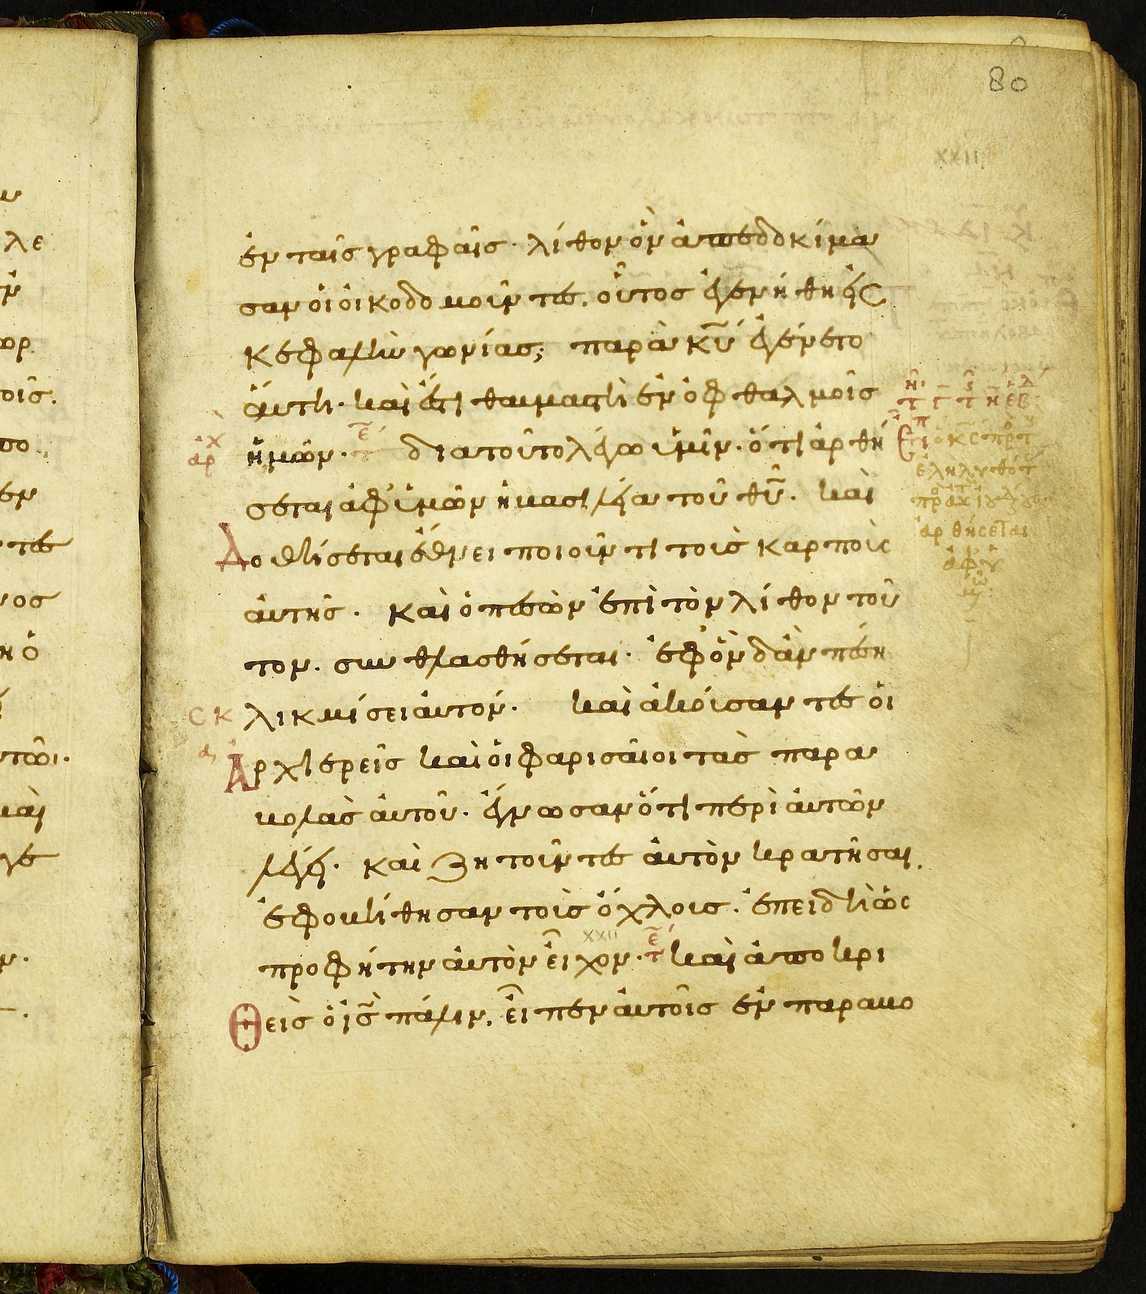 80
XXII
ἐν ταῖς γραφαῖς · λίθον ὃν ἀπεδοκίμα
σαν οἱ οἰκοδομοῦντες, οὗτος ἐγενήθη εἰς
κεφαλὴν γωνίας; παρὰ κῡ ἐγένετο
αὕτη · καὶ ἔστι θαυμαστὴ ἐν ὀφθαλμοῖς
ἡμῶν · τε διατοῦτο λέγω ὑμῖν · ὅτι ἀρθή
σεται ἀφ' ὑμῶν ἡ βασιλεία τοῦ θῡ · καὶ
Δοθήσεται ἔθνει ποιοῦντι τοὺς καρποὺς
αὐτῆς · καὶ ὁ πεσὼν ἐπὶ τὸν λίθον τοῦ
τον · συνθλασθήσεται · ἐφ' ὃν δ' ἂν πέση
λικμήσει αὐτόν · καὶ ἀκούσαντες οἱ
Ἀρχιερεῖς καὶ οἱ φαρισαῖοι τὰς παρα
βολὰς αὐτοῦ · ἔγνωσαν ὅτι περὶ αὐτῶν
λέγει · καὶ ζητοῦντες αὐτὸν κρατῆσαι,
ἐφοβήθησαν τοὺς ὄχλους · ἐπειδὴ ὡς
XXII
προφήτην αὐτὸν εἶχον · τε καὶ ἀποκρι
Θεὶς ὁ ις̄ πάλιν, εἶπεν αὐτοῖς ἐν παραβο
ἀρχ
ἀρθήσεται
ἀφ' ὑ
μῶ